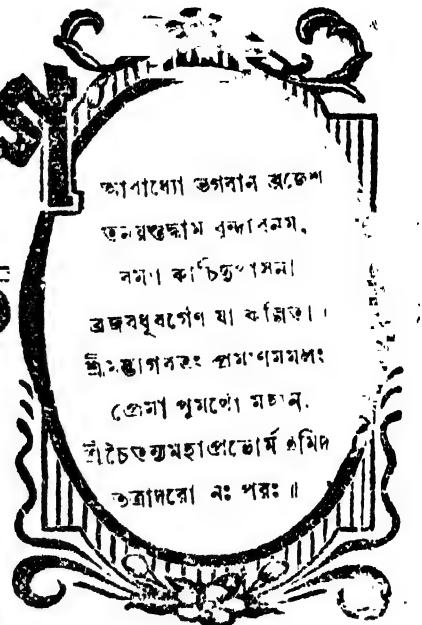 আরাধ্যো ভগবান ব্রজেশ
তনয়স্তদ্ধাম বৃন্দাবনম্,
রম্যা কাচিদুপাসনা
ব্রজবধূবর্গেণ যা কল্পিতা।
শ্রীমদ্ভাগবতং প্রমাণমমলং
প্রেমা পুমর্থো মহান্,
শ্রীচৈতন্যমহাপ্রভোর্মতমিদং
তত্রাদরো নঃ পরঃ॥